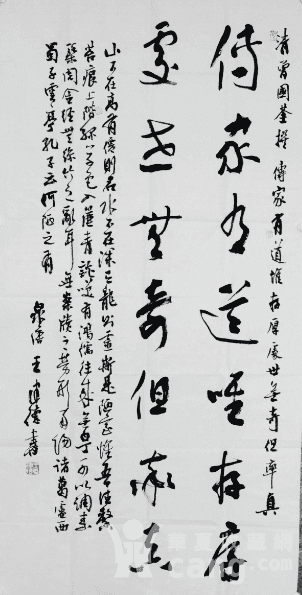 清曾国荃撰 傳家有道惟存厚 處世無奇但率真
傳家有道唯存厚
處世無奇但率真
山不在高有僊則名水不在深有龍則靈斯是陋室惟吾德馨
苔痕上階綠草色入簾青談笑有鴻儒往來無白丁可以調素
琴閱金經無絲竹之亂耳無案牘之勞形南陽諸葛廬西
蜀子雲亭孔子云何陋之有
王建德書
華夏收藏網
cang.com